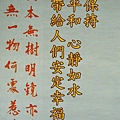 保持
平和 心靜如水
帶給人們安定幸福
本無樹明鏡亦
無一物何處惹